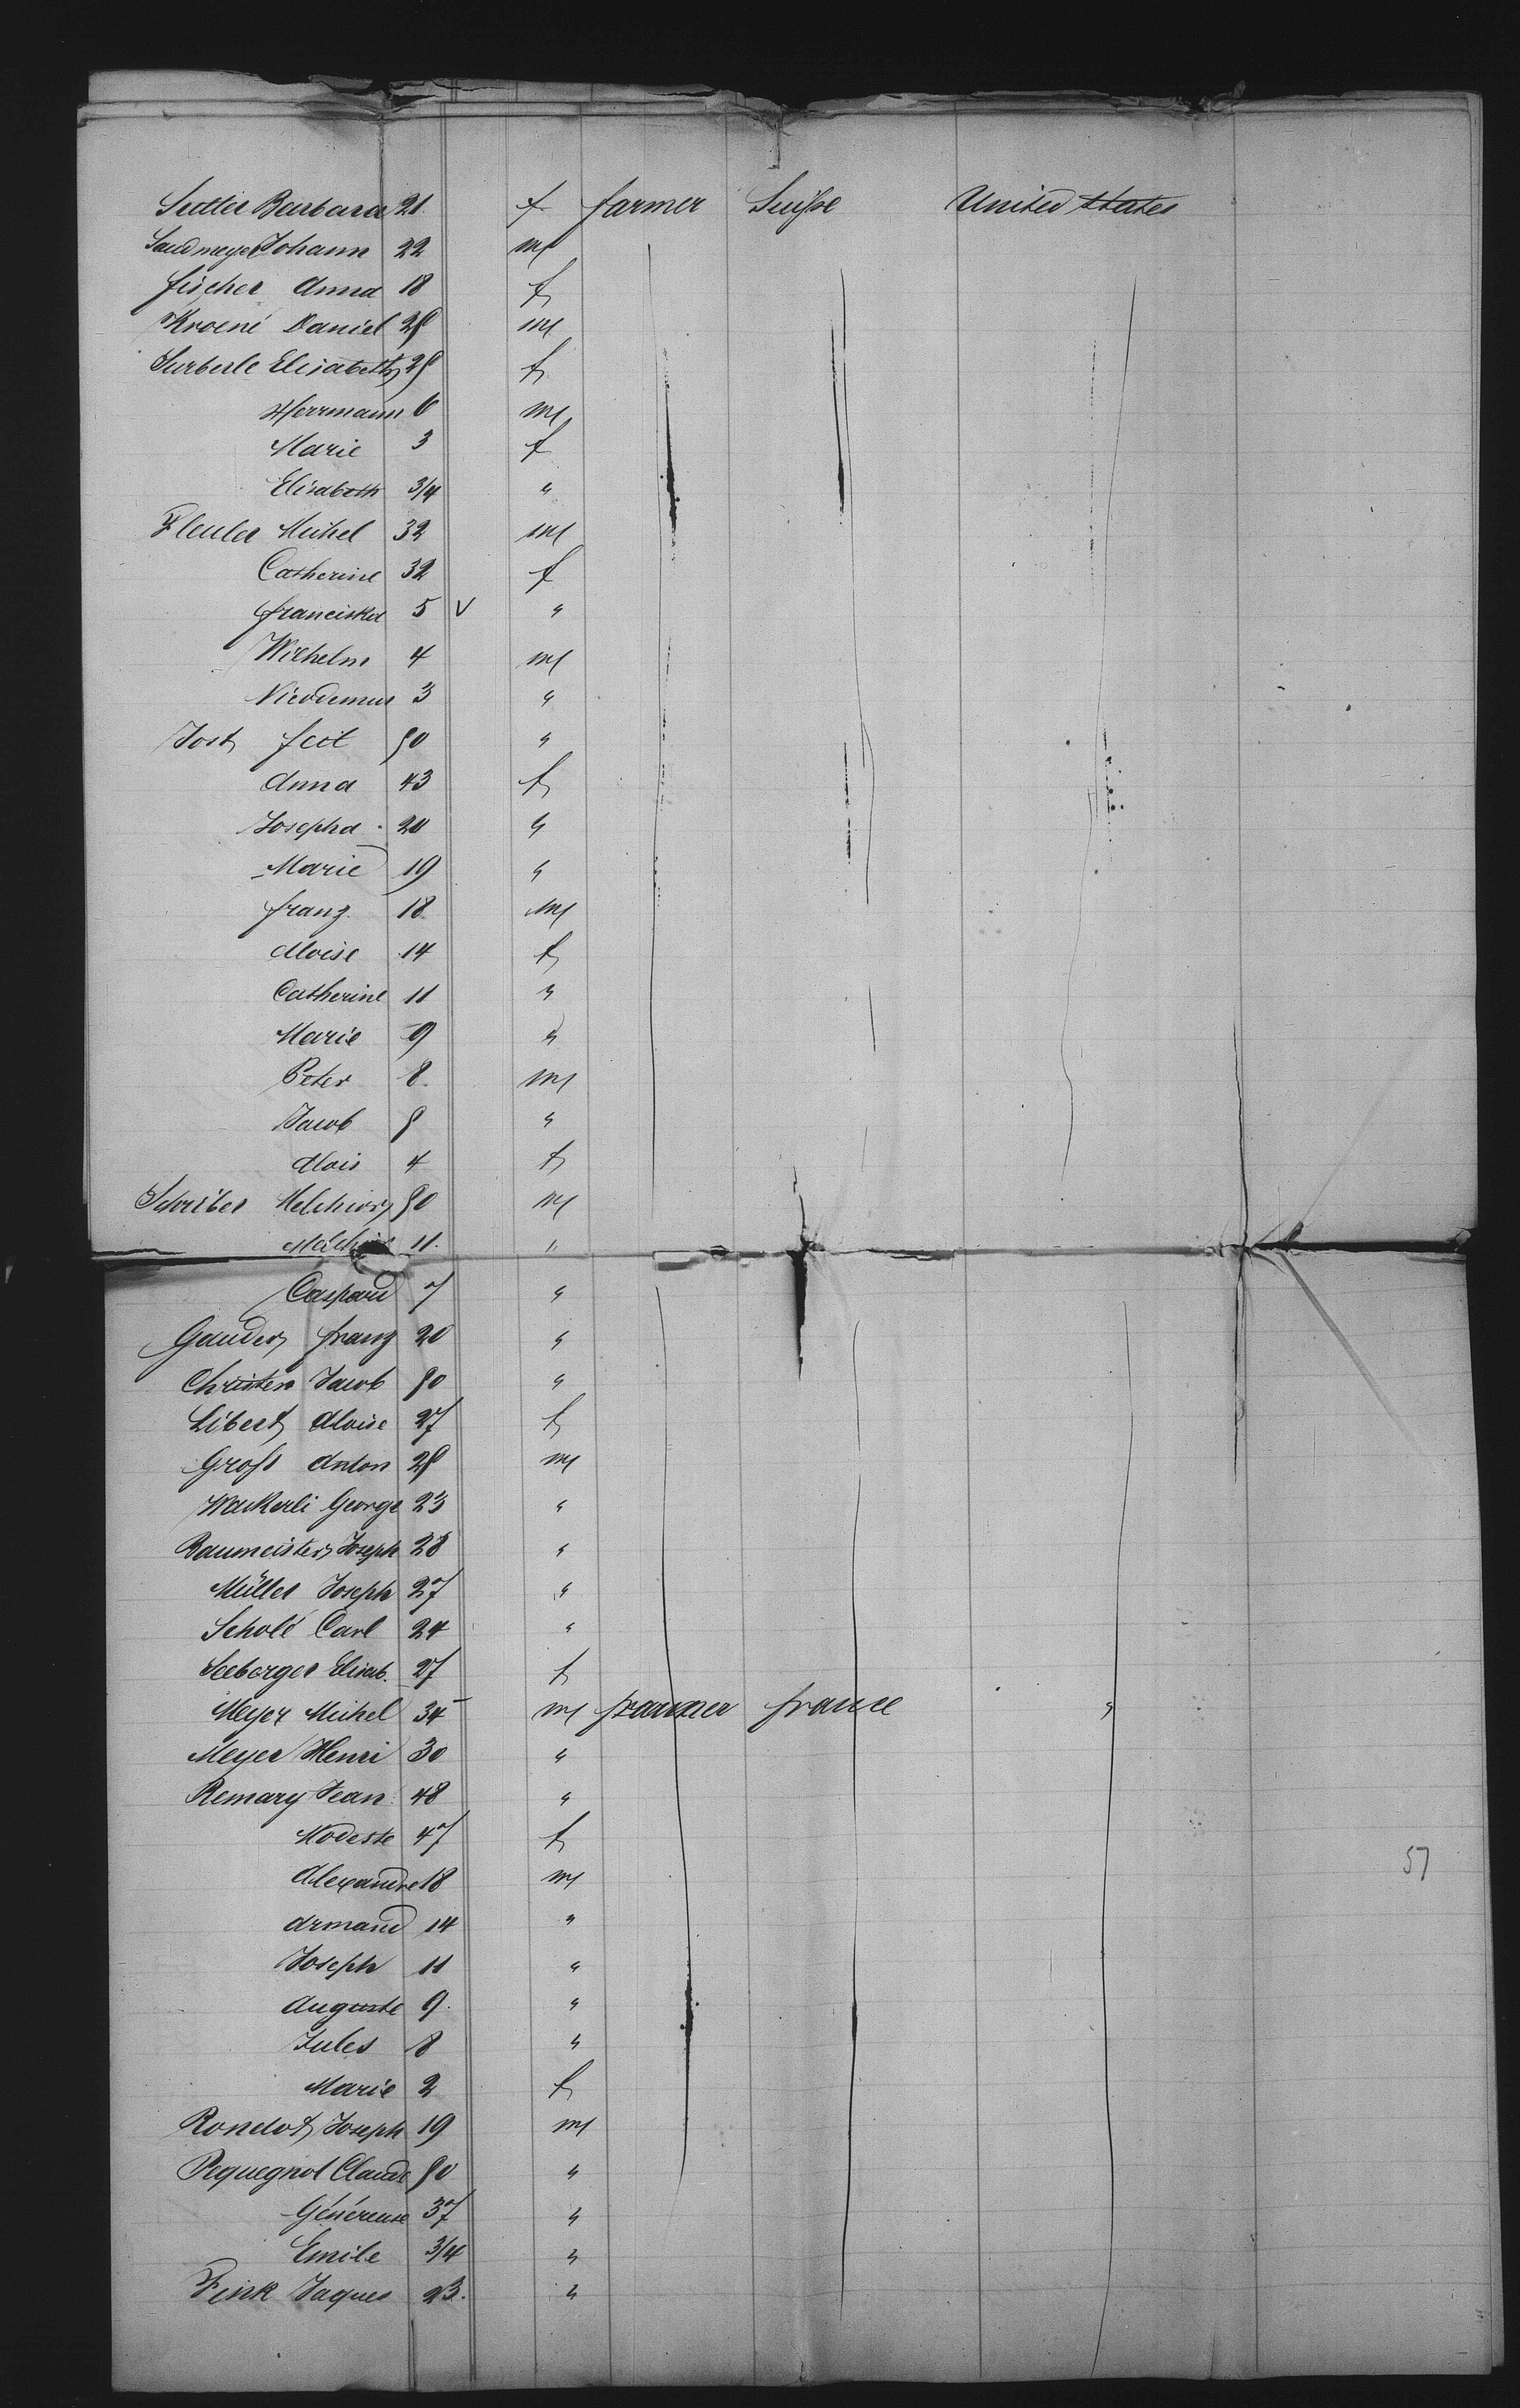 Sutter Barbara 21 f farmer Suisse United States
Sandmeyer Johann 22 m
fischer Anna 18 f
Kroeni Daniel 25 m
Surberle Elisabeth 25 f
Herrmann 6 m
Marie 3 f
Elisabeth 3/4 "
Fleuler Michel 32 m
Catherine 32 f
franciska 5 V "
Wilhelm 4 m
Nicodemus 3 "
Jost feit 50 "
Anna 43 f
Josepha 20 "
Marie 19 "
franz 18 m
Aloise 14 f
Catherine 11 "
Marie 9 "
Peter 8 m
Jacob 5 "
Alois 4 f
Schriber Melchior 50 m
Melchior 11 "
Caspard 7 "
Gander franz 20 "
Christen Jacob 50 "
Libert Aloise 27 f
Gross Anton 25 m
Wackerli George 23 "
Baumeister Joseph 28 "
Müller Joseph 27 "
Scholé Carl 24 "
Seeberger Elisab. 27 f
Meyer Michel 34 m farmer france "
Meyer Henri 30 "
Remary Jean 48 "
Modeste 47 f
Alexandre 18 m
Armand 14 "
Joseph 11 "
Auguste 9 "
Jules 8 "
Marie 2 f
57
Rondot Joseph 19 m
Pequegnot Claude 50 "
Généreuse 37 "
Emile 3/4 "
Fink Jaques 23 "